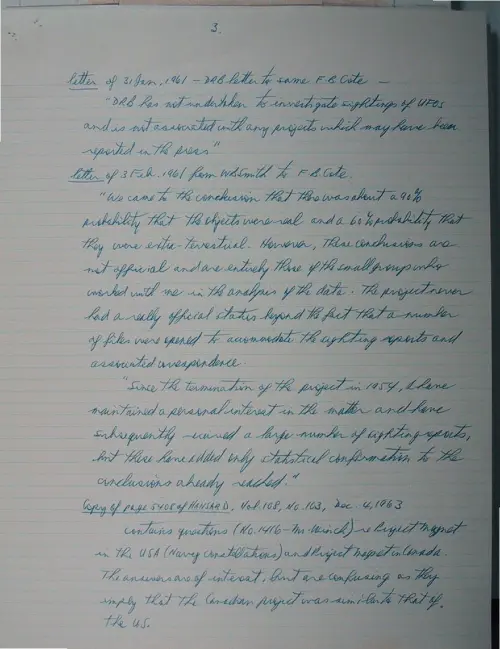 3.
letter of 31 Jan, 1961 – DRB letter to same F.B. Cote –
"DRB has not undertaken to investigate sightings of UFOs
and is not associated with any projects which may have been
reported in the press"
letter of 3 Feb. 1961 from W.B. Smith to F.B. Cote.
"We came to the conclusion that there was about a 90%
probability that the objects were real and a 60% probability that
they were extra-terrestrial. However, these conclusions are
not official and are entirely those of the small group who
worked with me in the analysis of the data. The project never
had a really official status beyond the fact that a number
of files were opened to accommodate the sighting reports and
associated correspondence.
"Since the termination of the project in 1954, I have
maintained a personal interest in the matter and have
subsequently received a large number of sighting reports,
but these have added only statistical confirmation to the
conclusions already reached."
Copy of page 5405 of HANSARD, Vol. 108, No. 103, Dec. 4, 1963
contains questions (No. 1416 – Mr. Winch) re Project Magnet
in the USA (Navy Constellations) and Project Magnet in Canada.
The answers are of interest, but are confusing as they
imply that the Canadian project was similar to that of
the US.